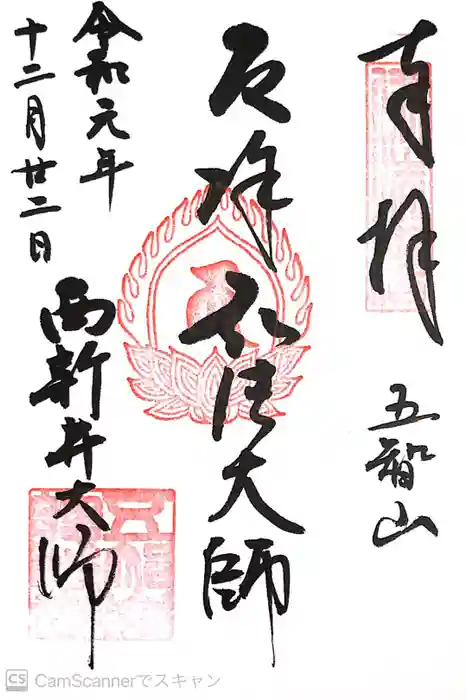 奉拝
五智山
厄除弘法大師
令和元年
十二月廿二日
西新井大師
CS CamScannerでスキャン